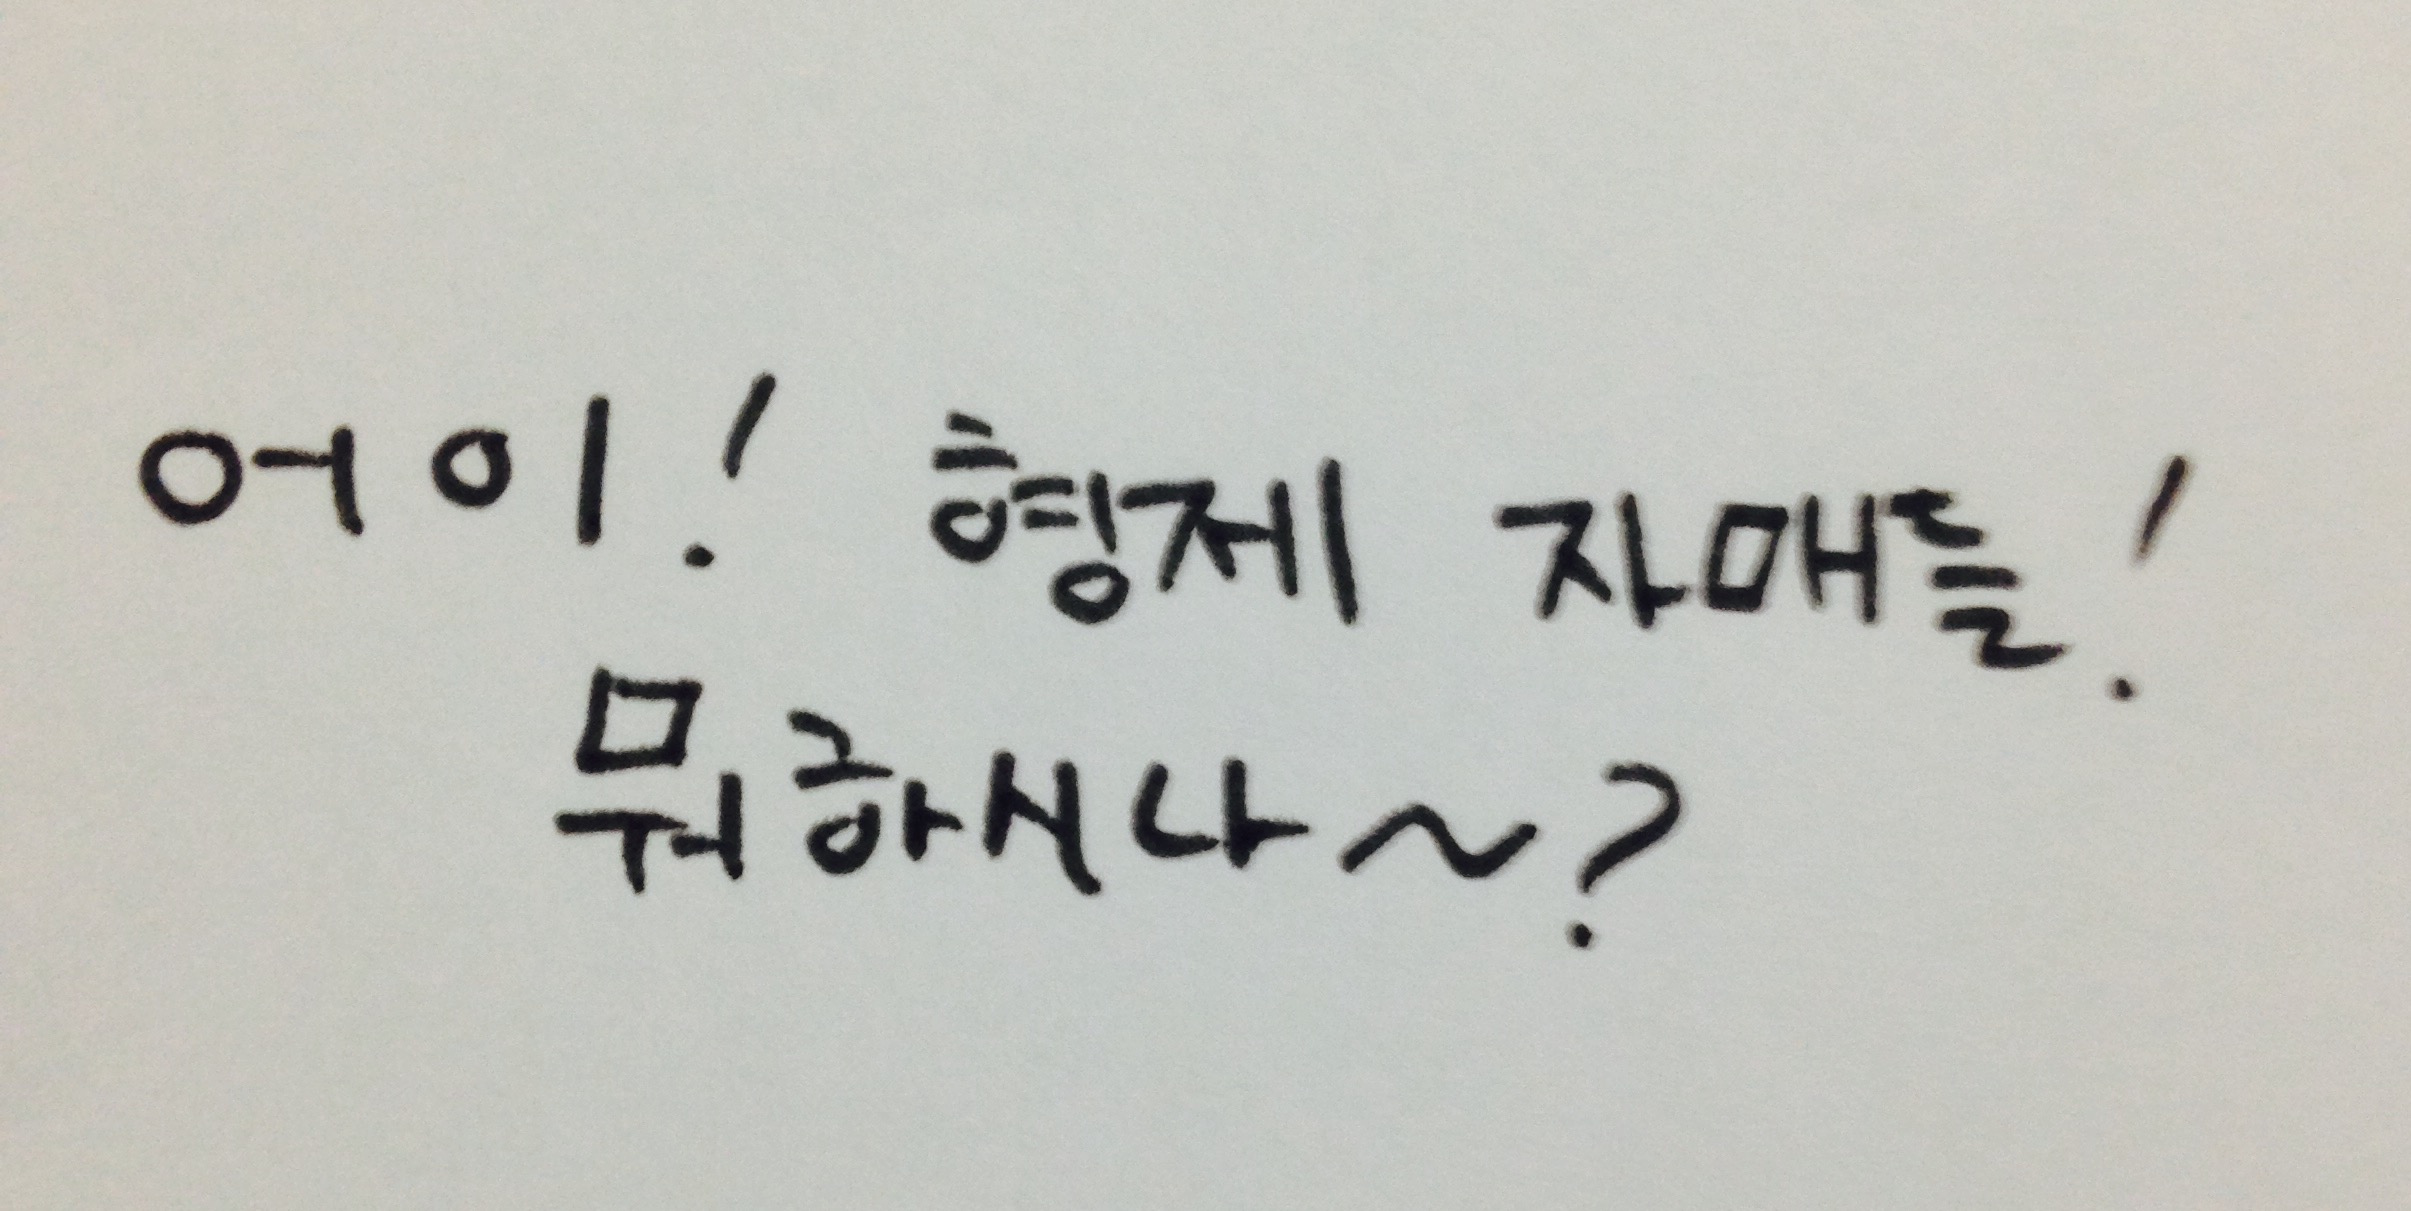 어이! 형제 자매들!
뭐하시나~?